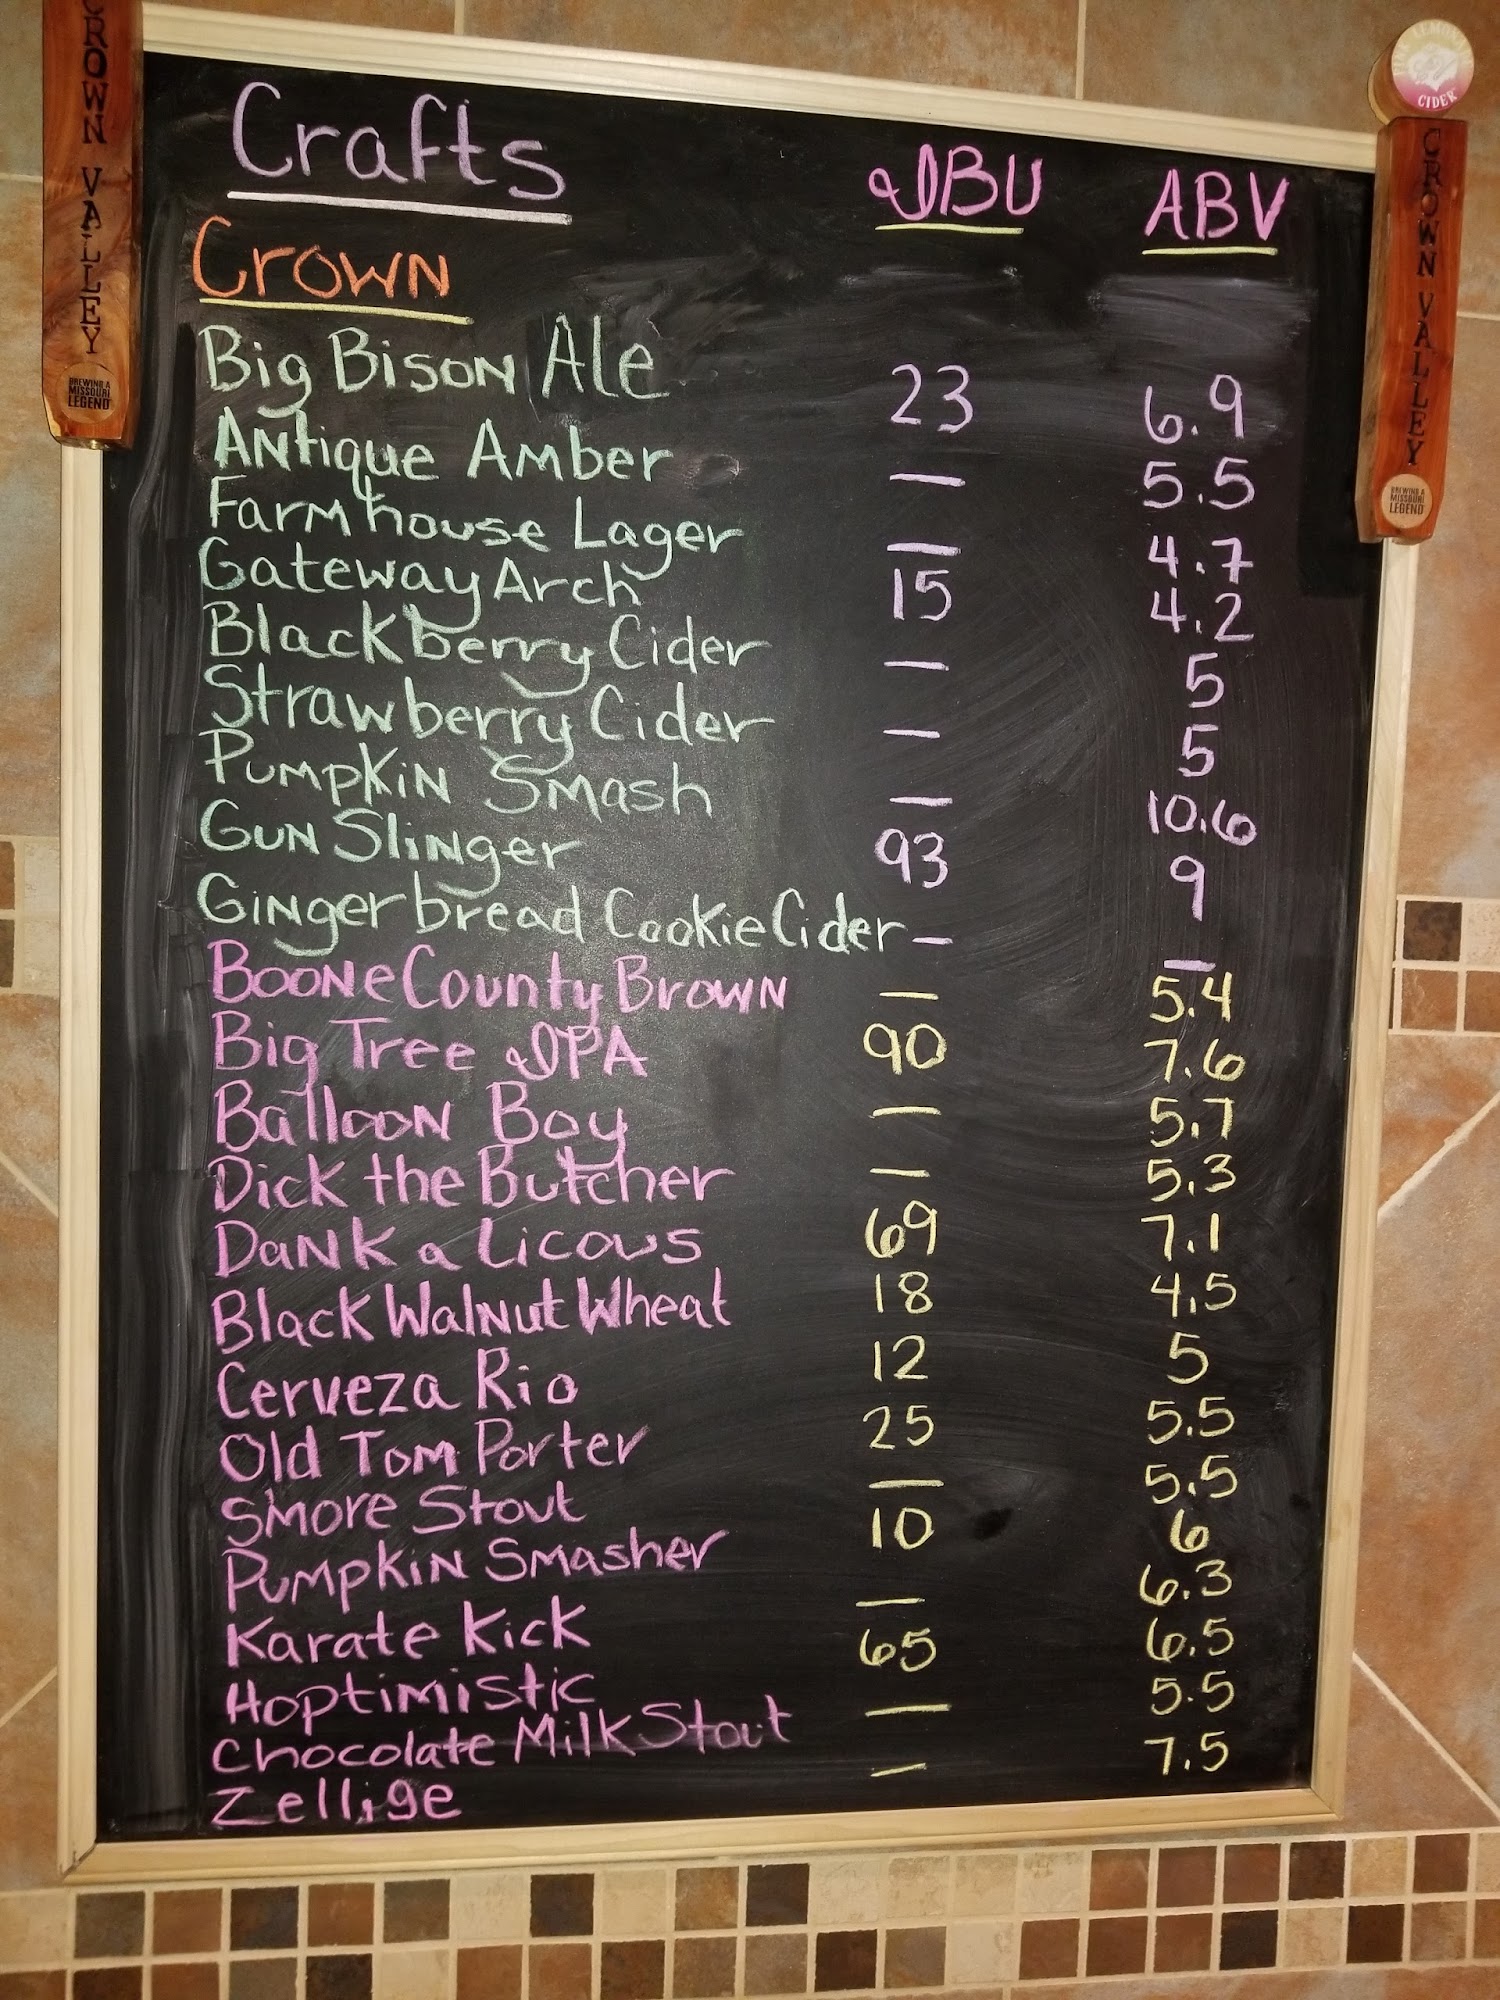 CROWN VALLEY
BREWING A
MISSOURI
LEGEND
Crafts IBU ABV
Crown
Big Bison Ale 23 6.9
Antique Amber — 5.5
Farmhouse Lager — 4.7
Gateway Arch 15 4.2
Blackberry Cider — 5
Strawberry Cider — 5
Pumpkin Smash — 10.6
Gun Slinger 93 9
Gingerbread Cookie Cider — —
Boone County Brown — 5.4
Big Tree IPA 90 7.6
Balloon Boy — 5.7
Dick the Butcher — 5.3
Dank a licous 69 7.1
Black Walnut Wheat 18 4.5
Cerveza Rio 12 5
Old Tom Porter 25 5.5
Smore Stout — 5.5
Pumpkin Smasher 10 6
Karate Kick — 6.3
Hoptimistic 65 6.5
Chocolate Milk Stout — 5.5
Zellige — 7.5
CIDER
CROWN VALLEY
BREWING A
MISSOURI
LEGEND